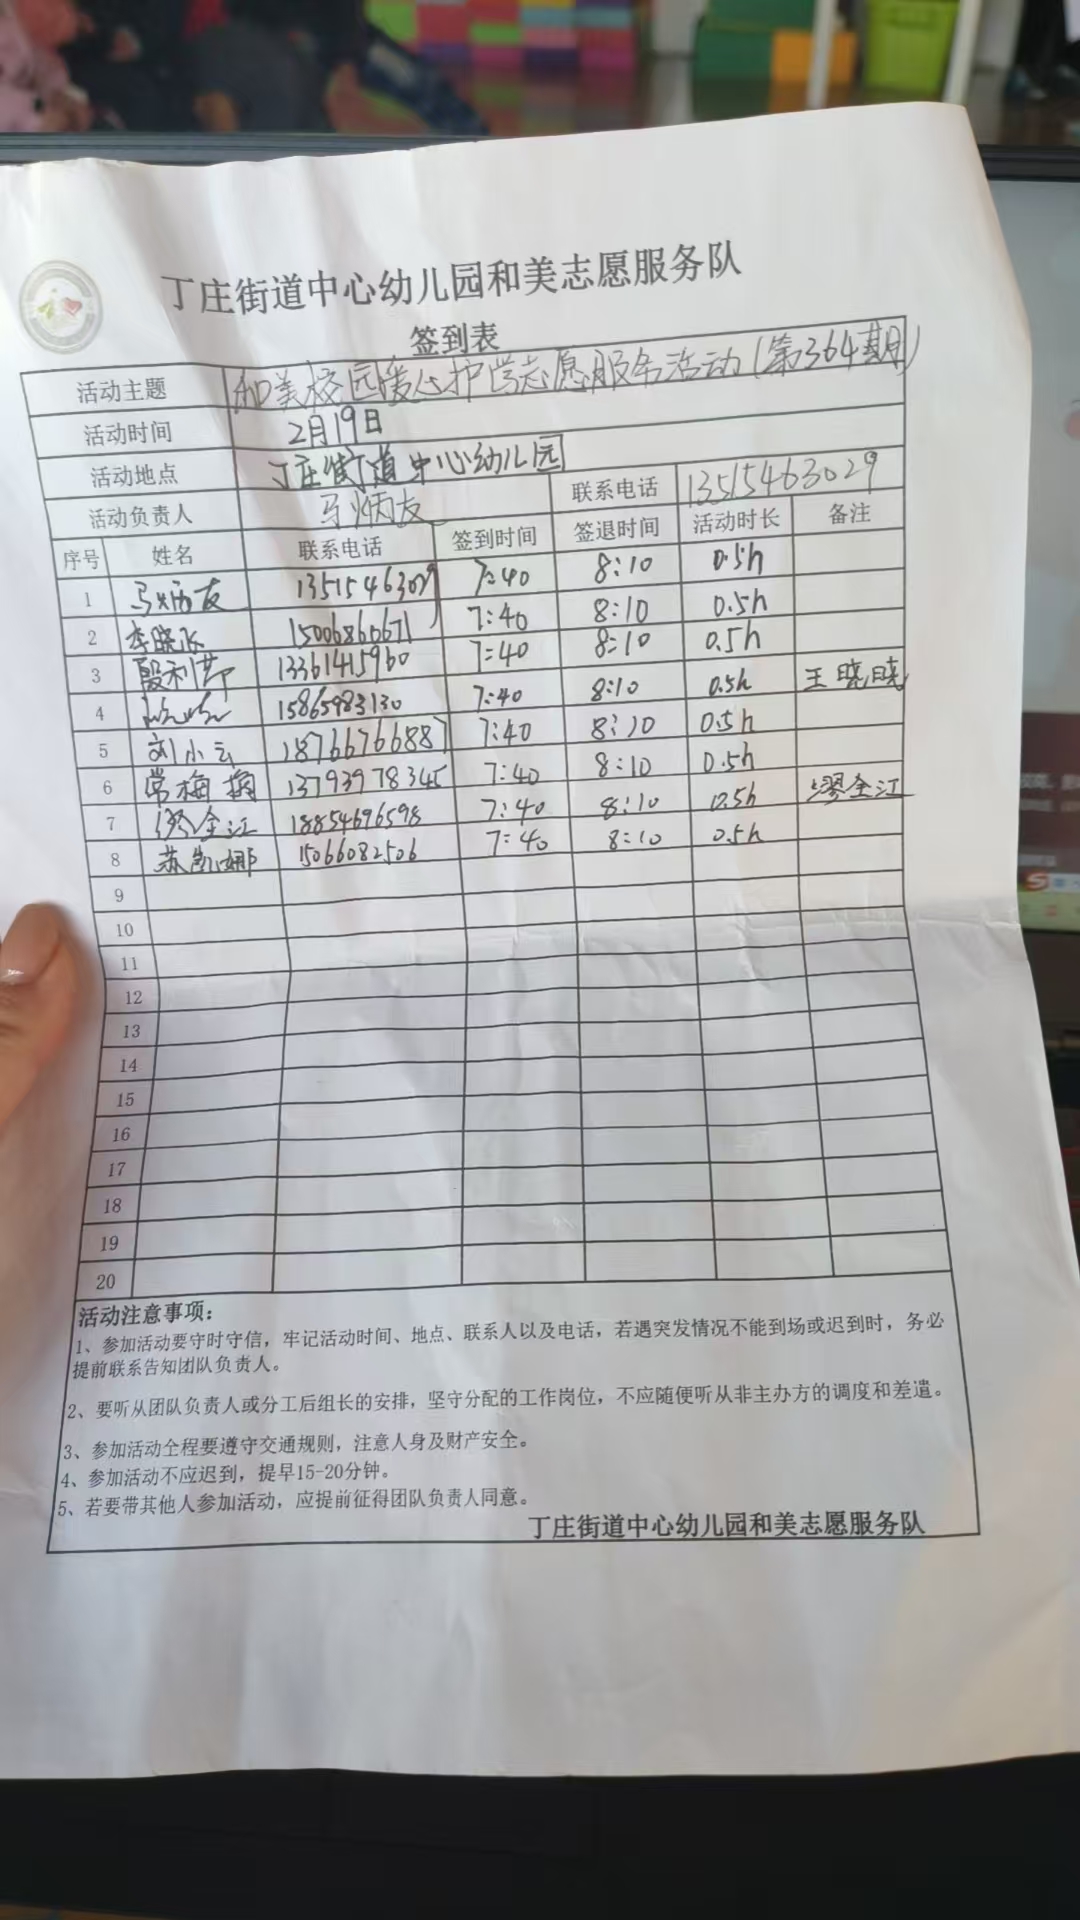 丁庄街道中心幼儿园和美志愿服务队
签到表
活动主题 和美校园爱心护学志愿服务活动(第364期)
活动时间 2月19日
活动地点 丁庄街道中心幼儿园
活动负责人 马炳友 联系电话 13515463029
序号 姓名 联系电话 签到时间 签退时间 活动时长 备注
1 马炳友 13515463029 7:40 8:10 0.5h
2 李晓飞 15006860671 7:40 8:10 0.5h
3 殷利苹 13361415960 7:40 8:10 0.5h
4 15865983130 7:40 8:10 0.5h 王晓晓
5 刘小云 18766766887 7:40 8:10 0.5h
6 常梅 13793978345 7:40 8:10 0.5h
7 缪全江 18854696598 7:40 8:10 0.5h 缪全江
8 苏凯娜 15066082506 7:40 8:10 0.5h
9
10
11
12
13
14
15
16
17
18
19
20
活动注意事项:
1、参加活动要守时守信，牢记活动时间、地点、联系人以及电话，若遇突发情况不能到场或迟到时，务必
提前联系告知团队负责人。
2、要听从团队负责人或分工后组长的安排，坚守分配的工作岗位，不应随便听从非主办方的调度和差遣。
3、参加活动全程要遵守交通规则，注意人身及财产安全。
4、参加活动不应迟到，提早15-20分钟。
5、若要带其他人参加活动，应提前征得团队负责人同意。
丁庄街道中心幼儿园和美志愿服务队